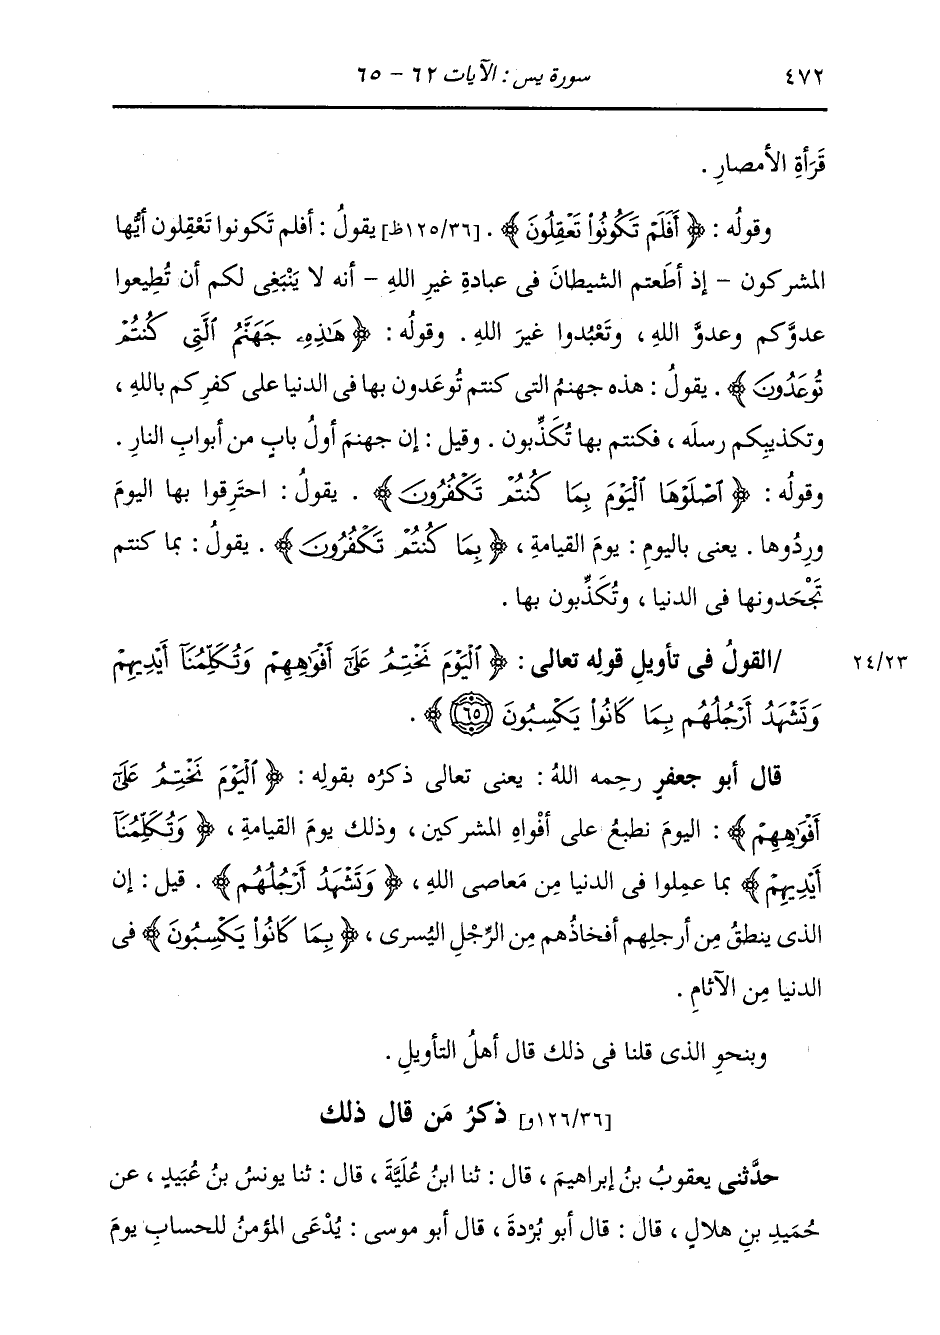 ٤٧٢ سورة يس : الآيات ٦٢ – ٦٥
قَرَأةِ الأمصارِ .
وقولُه : ﴿ أَفَلَمْ تَكُونُوا۟ تَعْقِلُونَ ﴾ . [١٢٥/٣٦ظ] يقولُ : أفلم تَكونوا تَعْقِلون أيُّها
المشركون – إذ أطَعتم الشيطانَ فى عبادةِ غيرِ اللهِ – أنه لا يَنْبَغِى لكم أن تُطِيعوا
عدوَّكم وعدوَّ اللهِ ، وتَعْبُدوا غيرَ اللهِ . وقولُه : ﴿ هَٰذِهِۦ جَهَنَّمُ ٱلَّتِى كُنتُمْ
تُوعَدُونَ ﴾ . يقولُ : هذه جهنمُ التى كنتم تُوعَدون بها فى الدنيا على كفرِكم باللهِ ،
وتكذيبِكم رسلَه ، فكنتم بها تُكَذِّبون . وقيل : إن جهنمَ أولُ بابٍ من أبوابِ النارِ .
وقولُه : ﴿ ٱصْلَوْهَا ٱلْيَوْمَ بِمَا كُنتُمْ تَكْفُرُونَ ﴾ . يقولُ : احترِقوا بها اليومَ
ورِدُوها . يعنى باليومِ : يومَ القيامةِ ، ﴿ بِمَا كُنتُمْ تَكْفُرُونَ ﴾ . يقولُ : بما كنتم
تَجْحَدونها فى الدنيا ، وتُكَذِّبون بها .
٢٤/٢٣ /القولُ فى تأويلِ قولِه تعالى : ﴿ ٱلْيَوْمَ نَخْتِمُ عَلَىٰٓ أَفْوَٰهِهِمْ وَتُكَلِّمُنَآ أَيْدِيهِمْ
وَتَشْهَدُ أَرْجُلُهُم بِمَا كَانُوا۟ يَكْسِبُونَ ٦٥ ﴾ .
قال أبو جعفرٍ رحِمه اللهُ : يعنى تعالى ذكرُه بقولِه : ﴿ ٱلْيَوْمَ نَخْتِمُ عَلَىٰٓ
أَفْوَٰهِهِمْ ﴾ : اليومَ نطبعُ على أفْواهِ المشركين ، وذلك يومَ القيامةِ ، ﴿ وَتُكَلِّمُنَآ
أَيْدِيهِمْ ﴾ بما عمِلوا فى الدنيا مِن مَعاصى اللهِ ، ﴿ وَتَشْهَدُ أَرْجُلُهُم ﴾ . قيل : إن
الذى ينطقُ مِن أرجلِهم أفخاذُهم مِن الرِّجْلِ اليُسرى ، ﴿ بِمَا كَانُوا۟ يَكْسِبُونَ ﴾ فى
الدنيا مِن الآثامِ .
وبنحوِ الذى قلنا فى ذلك قال أهلُ التأويلِ .
[١٢٦/٣٦و] ذكرُ مَن قال ذلك
حدَّثنى يعقوبُ بنُ إبراهيمَ ، قال : ثنا ابنُ عُلَيَّةَ ، قال : ثنا يونسُ بنُ عُبَيدٍ ، عن
حُمَيدِ بنِ هلالٍ ، قال : قال أبو بُرْدةَ ، قال أبو موسى : يُدْعَى المؤمنُ للحسابِ يومَ